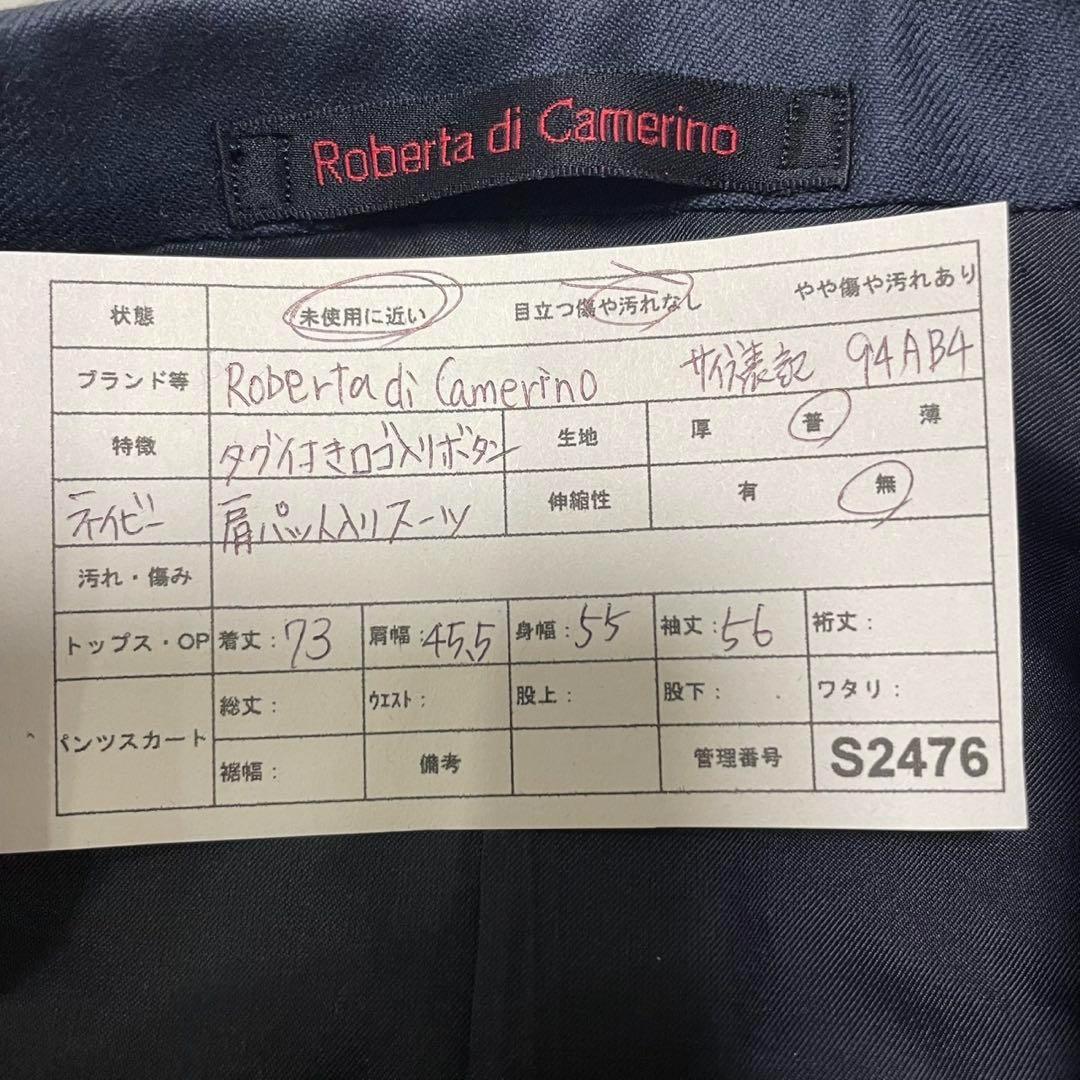 Roberta di Camerino
状態 未使用に近い 目立つ傷や汚れなし やや傷や汚れあり
ブランド等 Roberta di Camerino サイズ表記 94AB4
特徴 タグ付きロゴ入りボタン 生地 厚 普 薄
ネイビー 肩パット入りスーツ 伸縮性 有 無
汚れ・傷み
トップス・OP 着丈:73 肩幅:45.5 身幅:55 袖丈:56 裄丈:
パンツスカート 総丈: ウエスト: 股上: 股下: ワタリ:
裾幅: 備考 管理番号 S2476